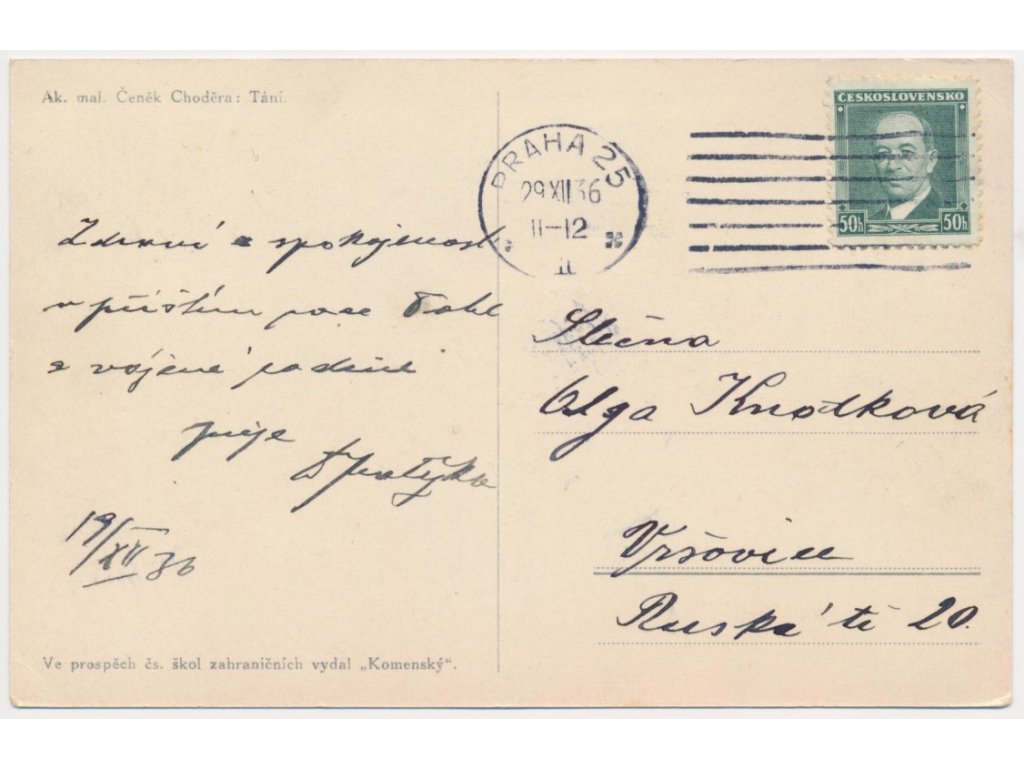 Ak. mal. Čeněk Choděra: Tání.
ČESKOSLOVENSKO
50h 50h
PRAHA 25
29 XII 36
11-12
II
Zdraví a spokojenost
v příštím roce Tobě
a vážené rodině
přeje
19/XII 36
Slečna
Olga Knotková
Vršovice
Ruská tř 20.
Ve prospěch čs. škol zahraničních vydal „Komenský".